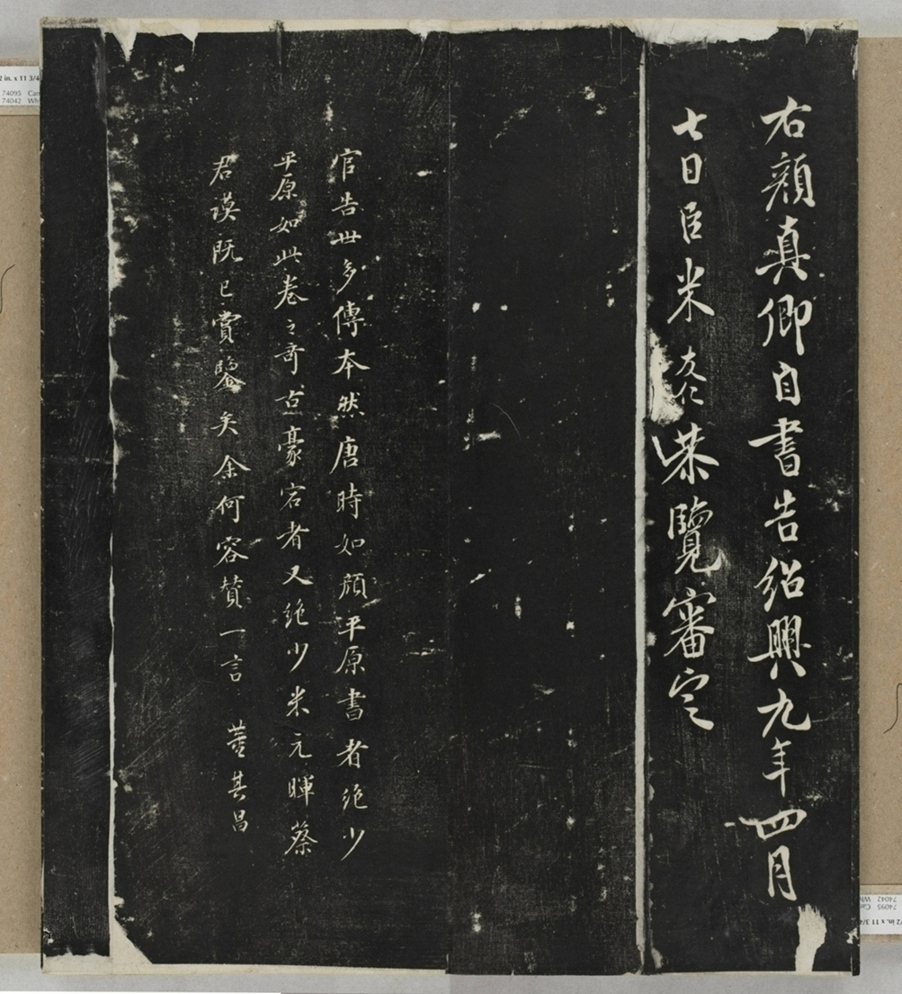 右顏真卿自書告紹興九年四月
七日臣米友仁恭覽審定
官告世多傳本然唐時如顏平原書者絕少
平原如此卷之奇古豪宕者又絕少米元暉蔡
君謨既已賞鑒矣余何容贊一言 董其昌
74095
74042